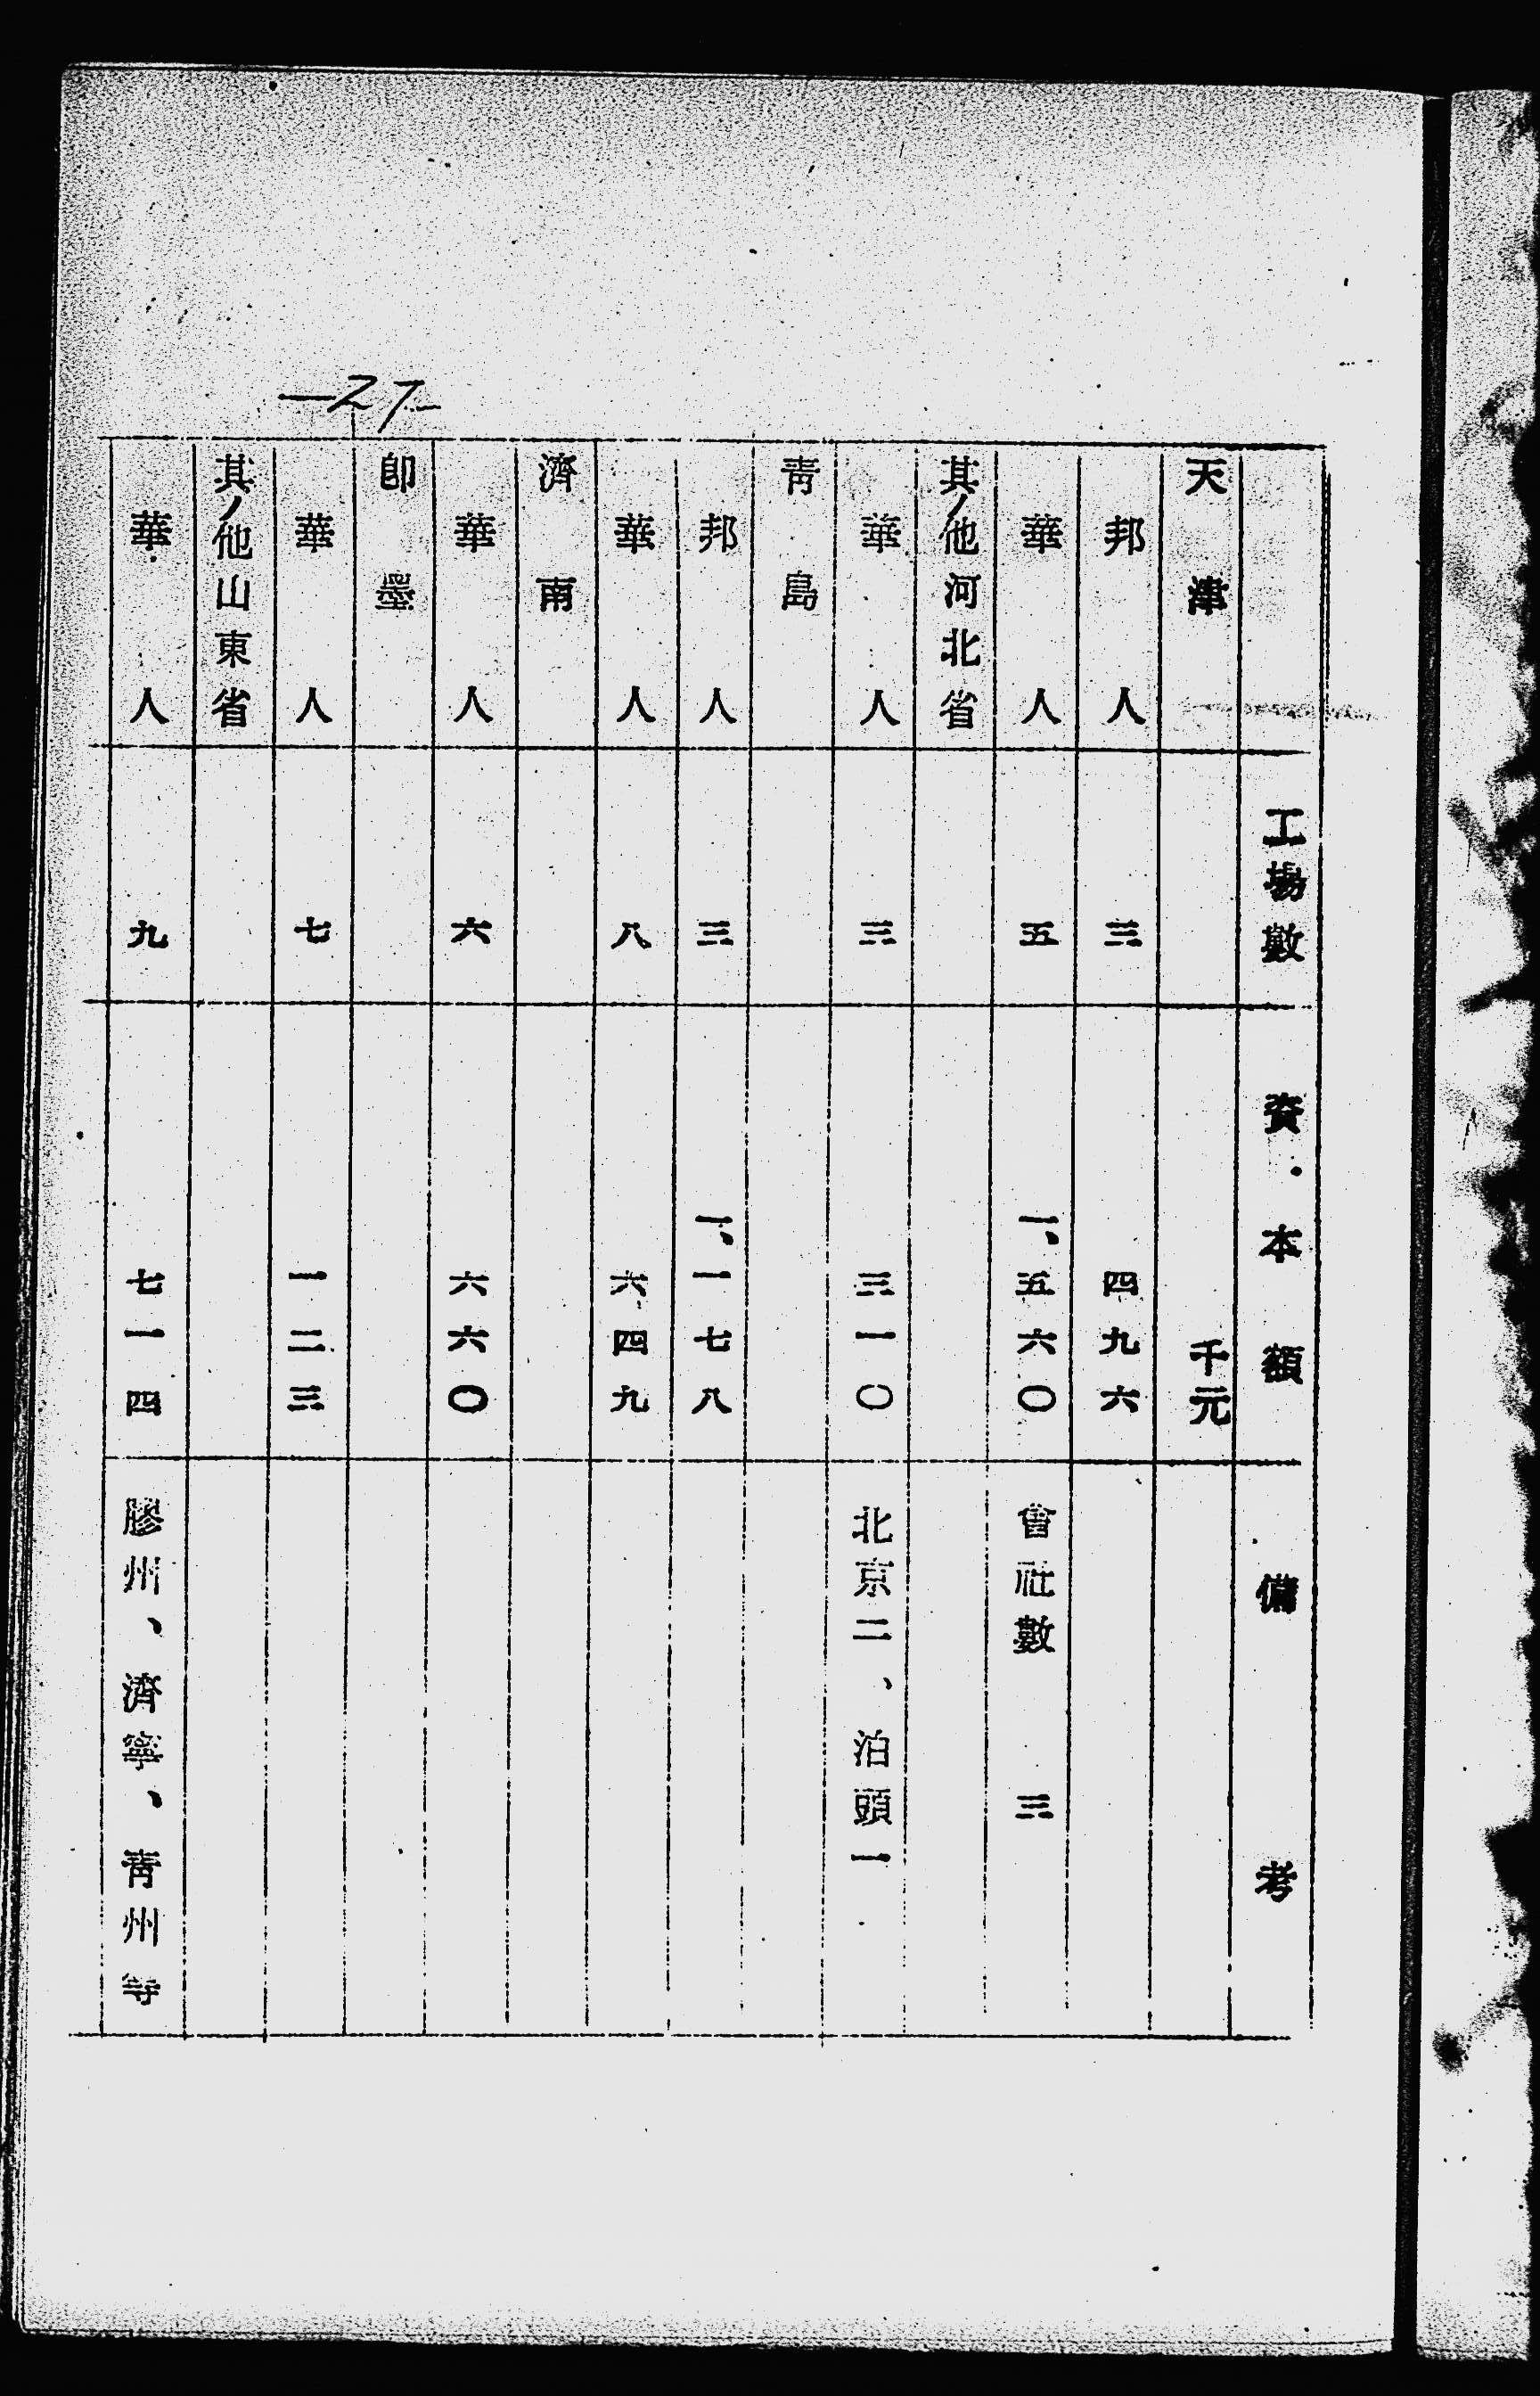 —27—
工場數 資本額 備考
天津 千元
邦人 三 四九六
華人 五 一、五六〇 會社數 三
其ノ他河北省
華人 三 三一〇 北京二、泊頭一
靑島
邦人 三 一、一七八
華人 八 六四九
濟南
華人 六 六六〇
卽墨
華人 七 一二三
其ノ他山東省
華人 九 七一四 膠州、濟寧、靑州等